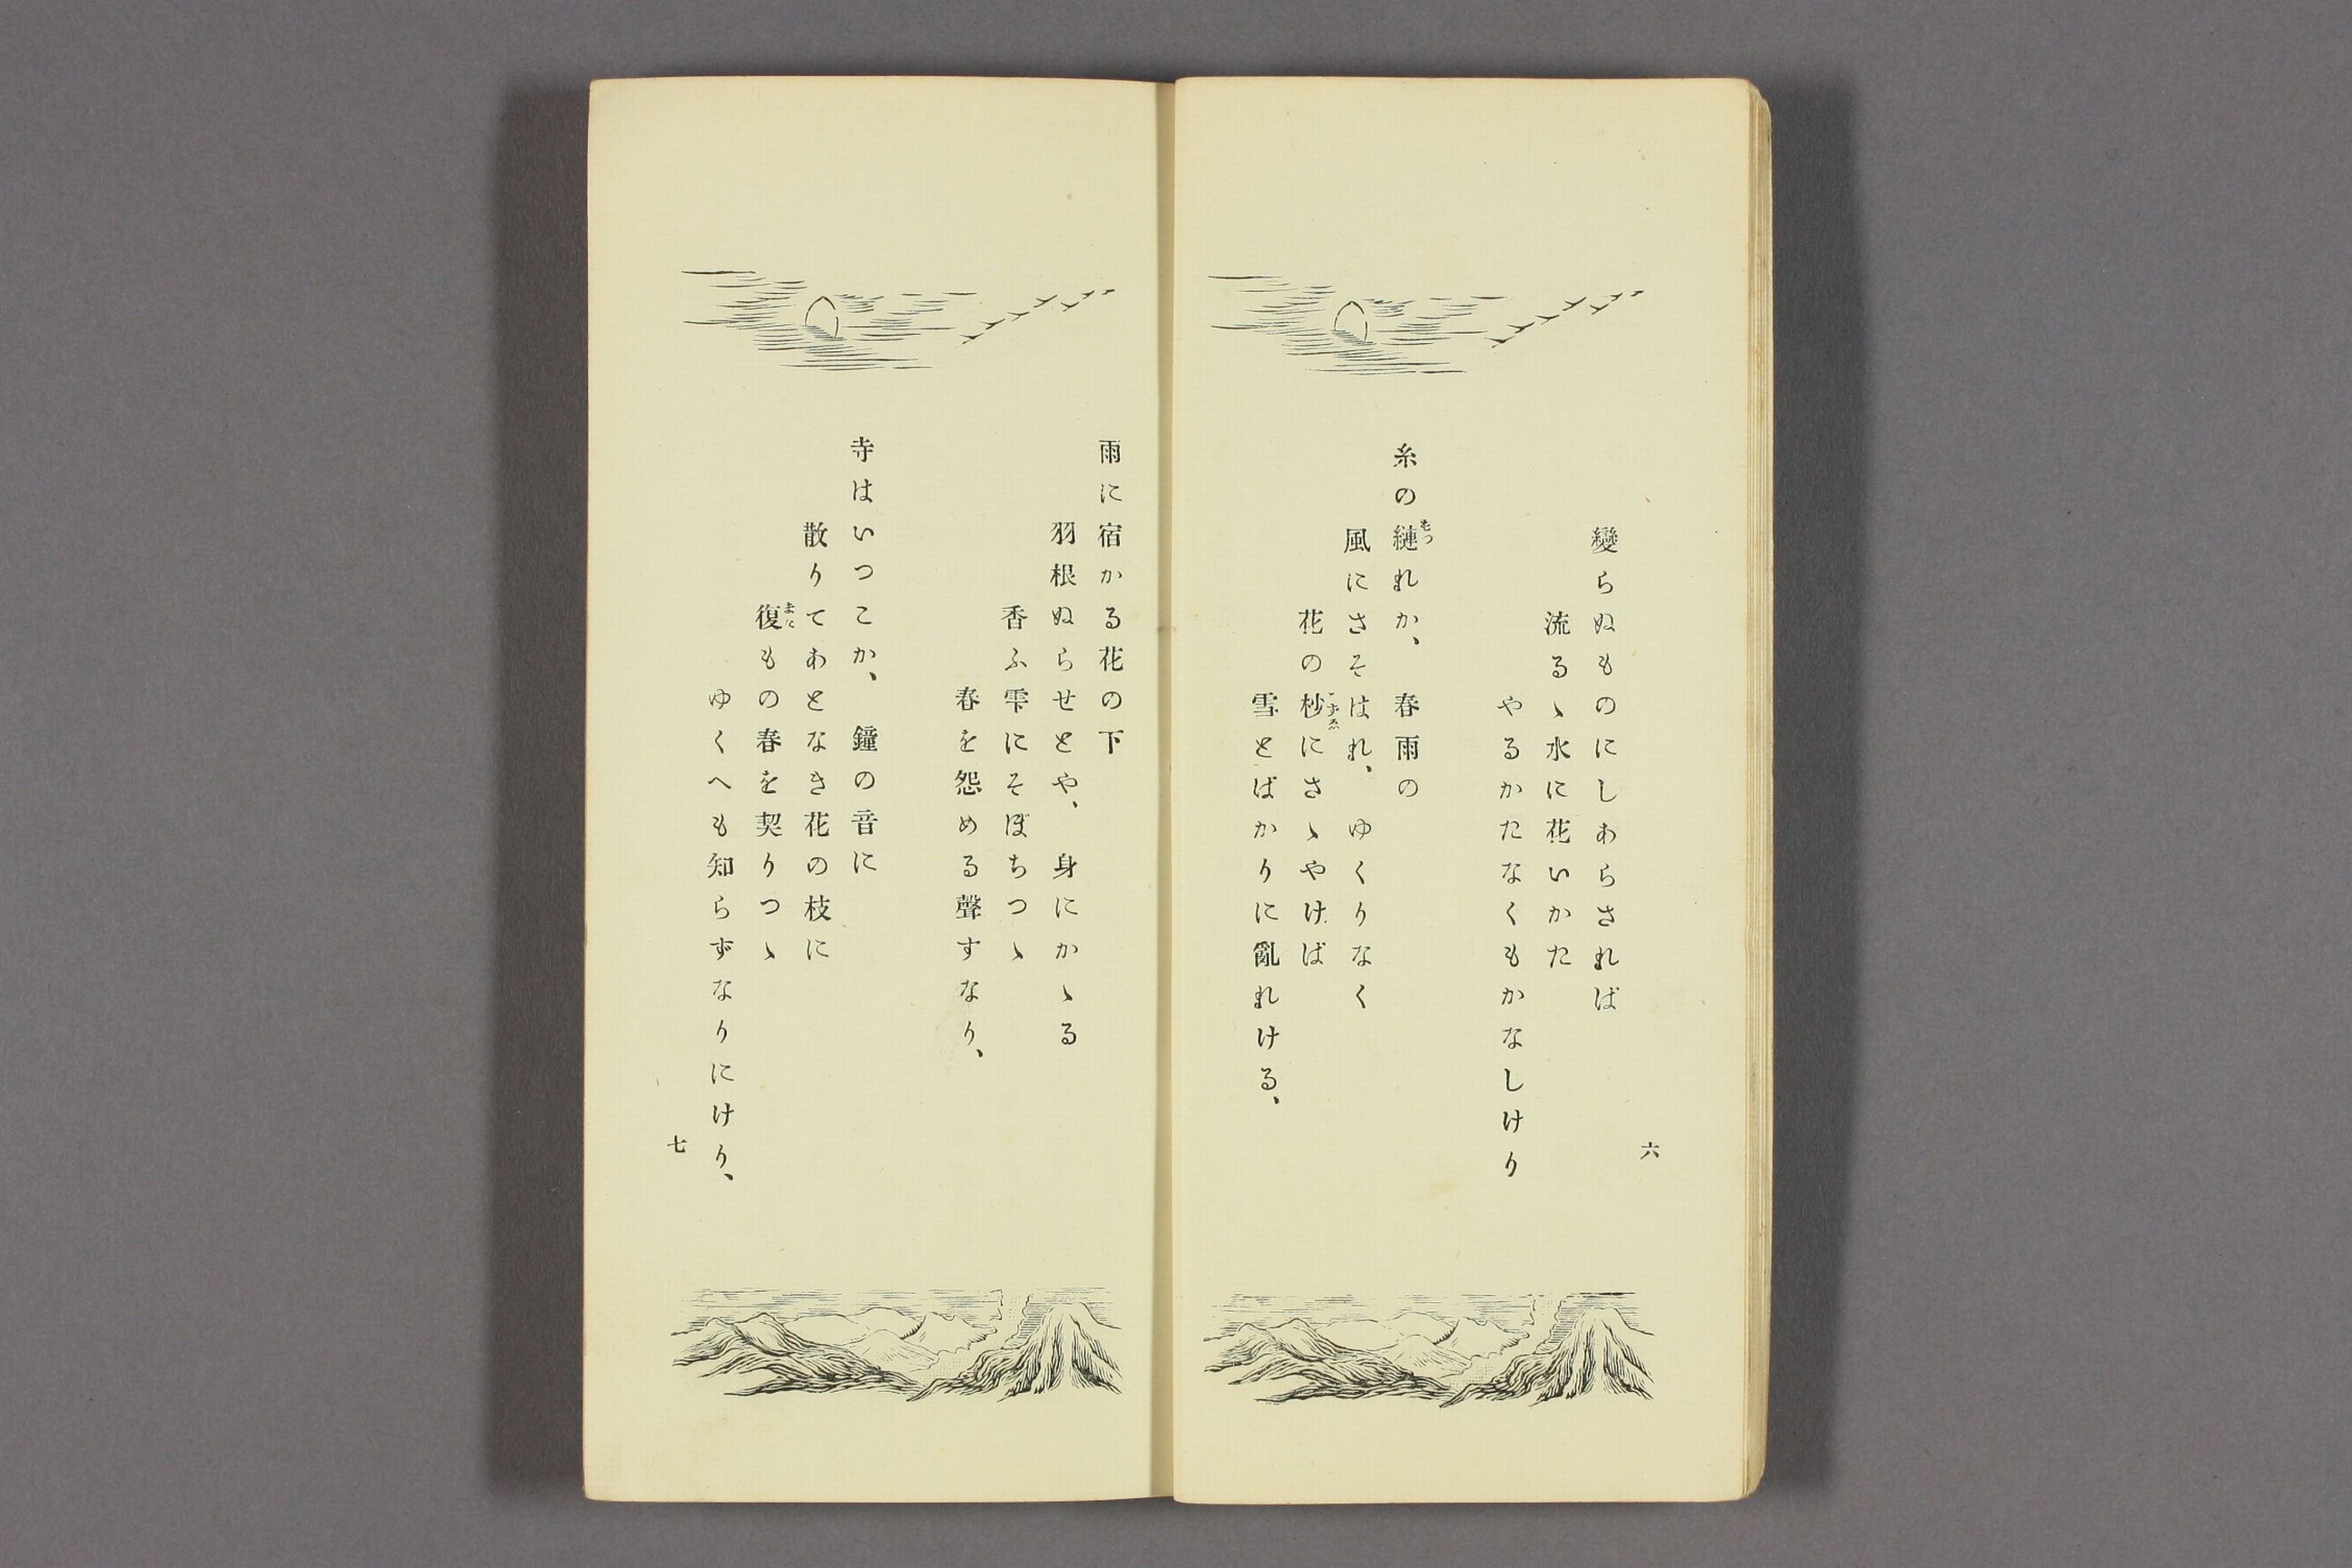 變らぬものにしあらされば
流るヽ水に花いかた
やるかたなくもかなしけり
糸の縺れか、春雨の
風にさそはれ、ゆくりなく
花の杪にさヽやけば
雪とばかりに亂れける、
六
雨に宿かる花の下
羽根ぬらせとや、身にかヽる
香ふ雫にそぼちつヽ
春を怨める聲すなり、
寺はいつこか、鐘の音に
散りてあとなき花の枝に
復もの春を契りつヽ
ゆくへも知らずなりにけり、
七